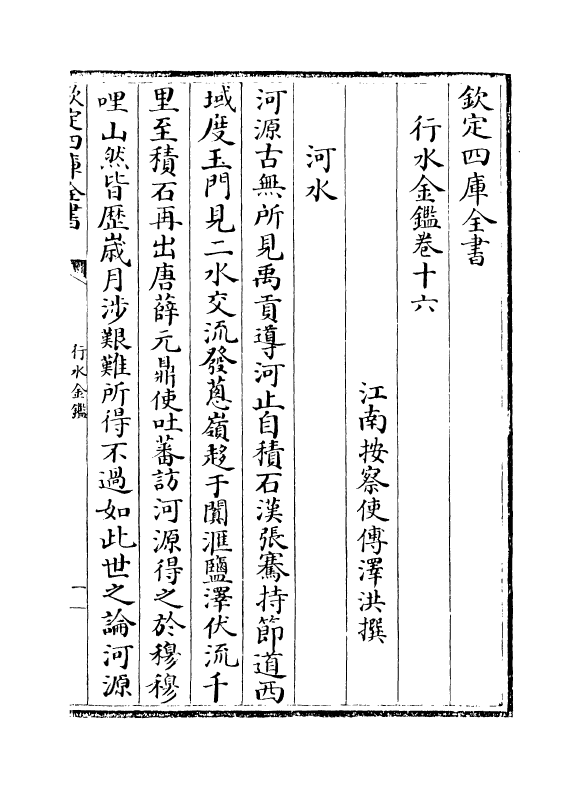 欽定四庫全書
行水金鑑卷十六
江南按察使傅澤洪撰
河水
河源古無所見禹貢導河止自積石漢張騫持節道西
域度玉門見二水交流發蔥嶺趍于闐滙鹽澤伏流千
里至積石再出唐薛元鼎使吐蕃訪河源得之於穆穆
哩山然皆歴歲月涉艱難所得不過如此世之論河源
欽定四庫全書
行水金鑑
一